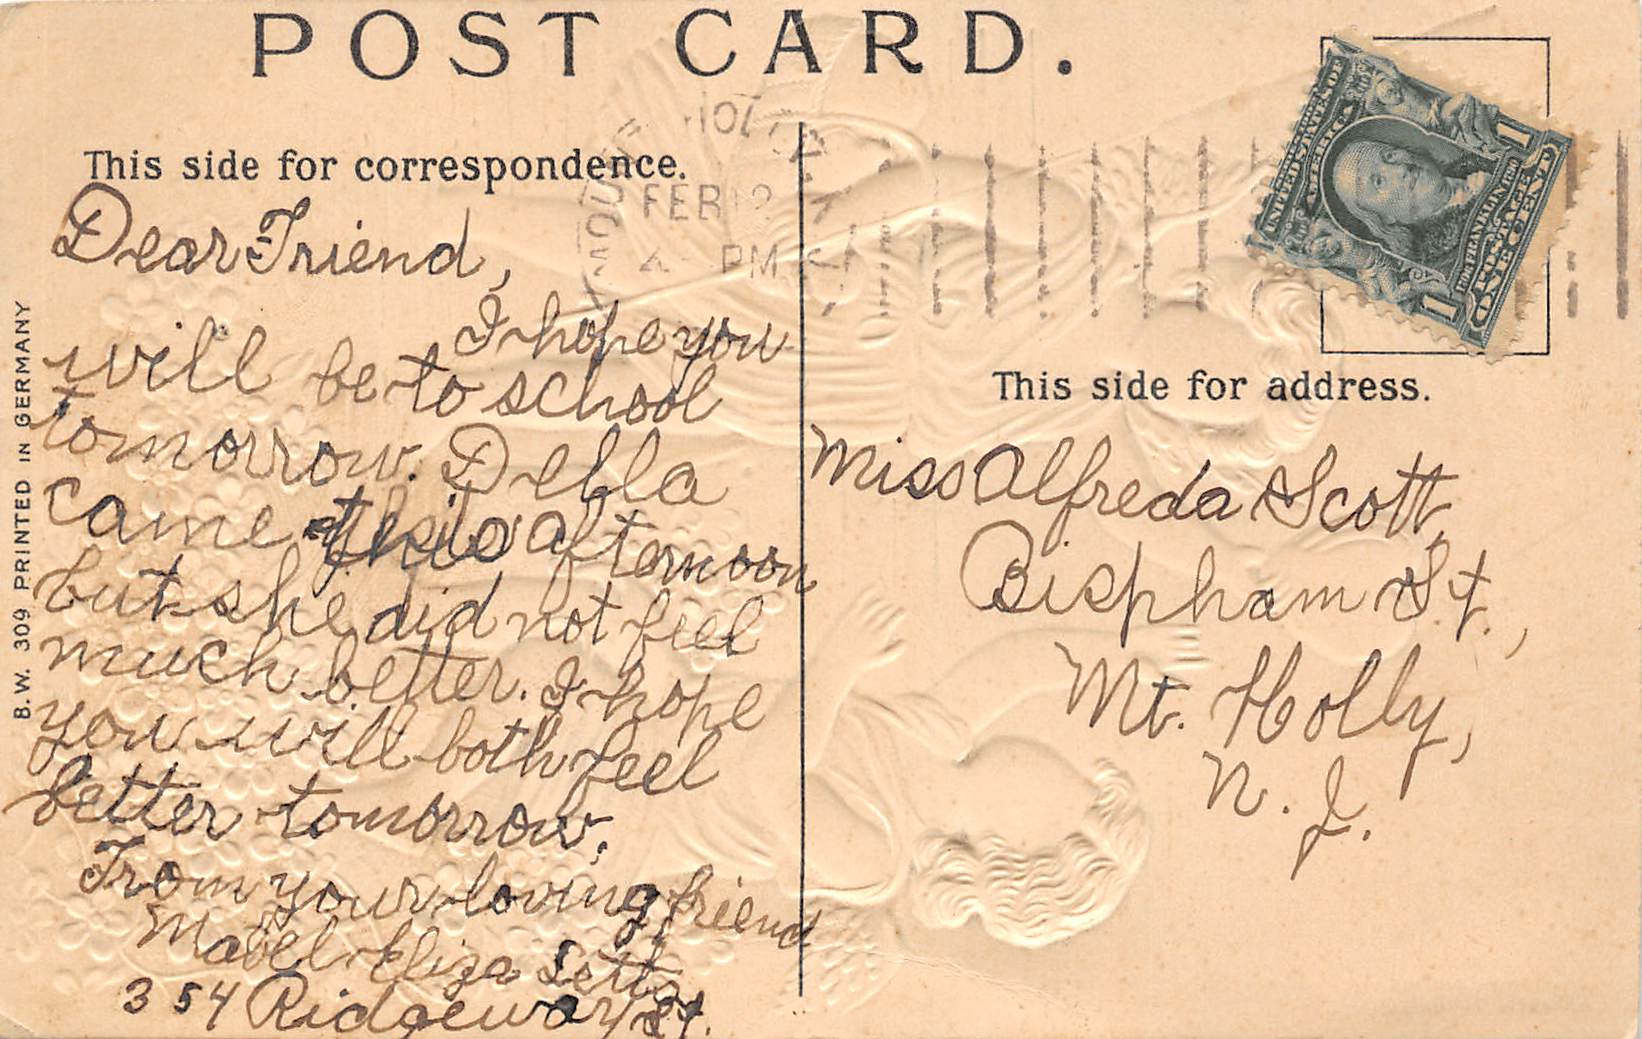 POST CARD.
This side for correspondence.
Dear Friend,
I hope you
will be to school
tomorrow. Della
came this afternoon
but she did not feel
much better. I hope
you will both feel
better tomorrow.
From your loving friend
Mabel Eliza Letts
354 Ridgeway St.
B.W. 309 PRINTED IN GERMANY
MOUNT HOLLY
FEB 12
4 PM
UNITED STATES OF
AMERICA
1
1
FRANKLIN
POSTAGE
ONE CENT
This side for address.
Miss Alfreda Scott,
Bispham St.,
Mt. Holly,
N. J.